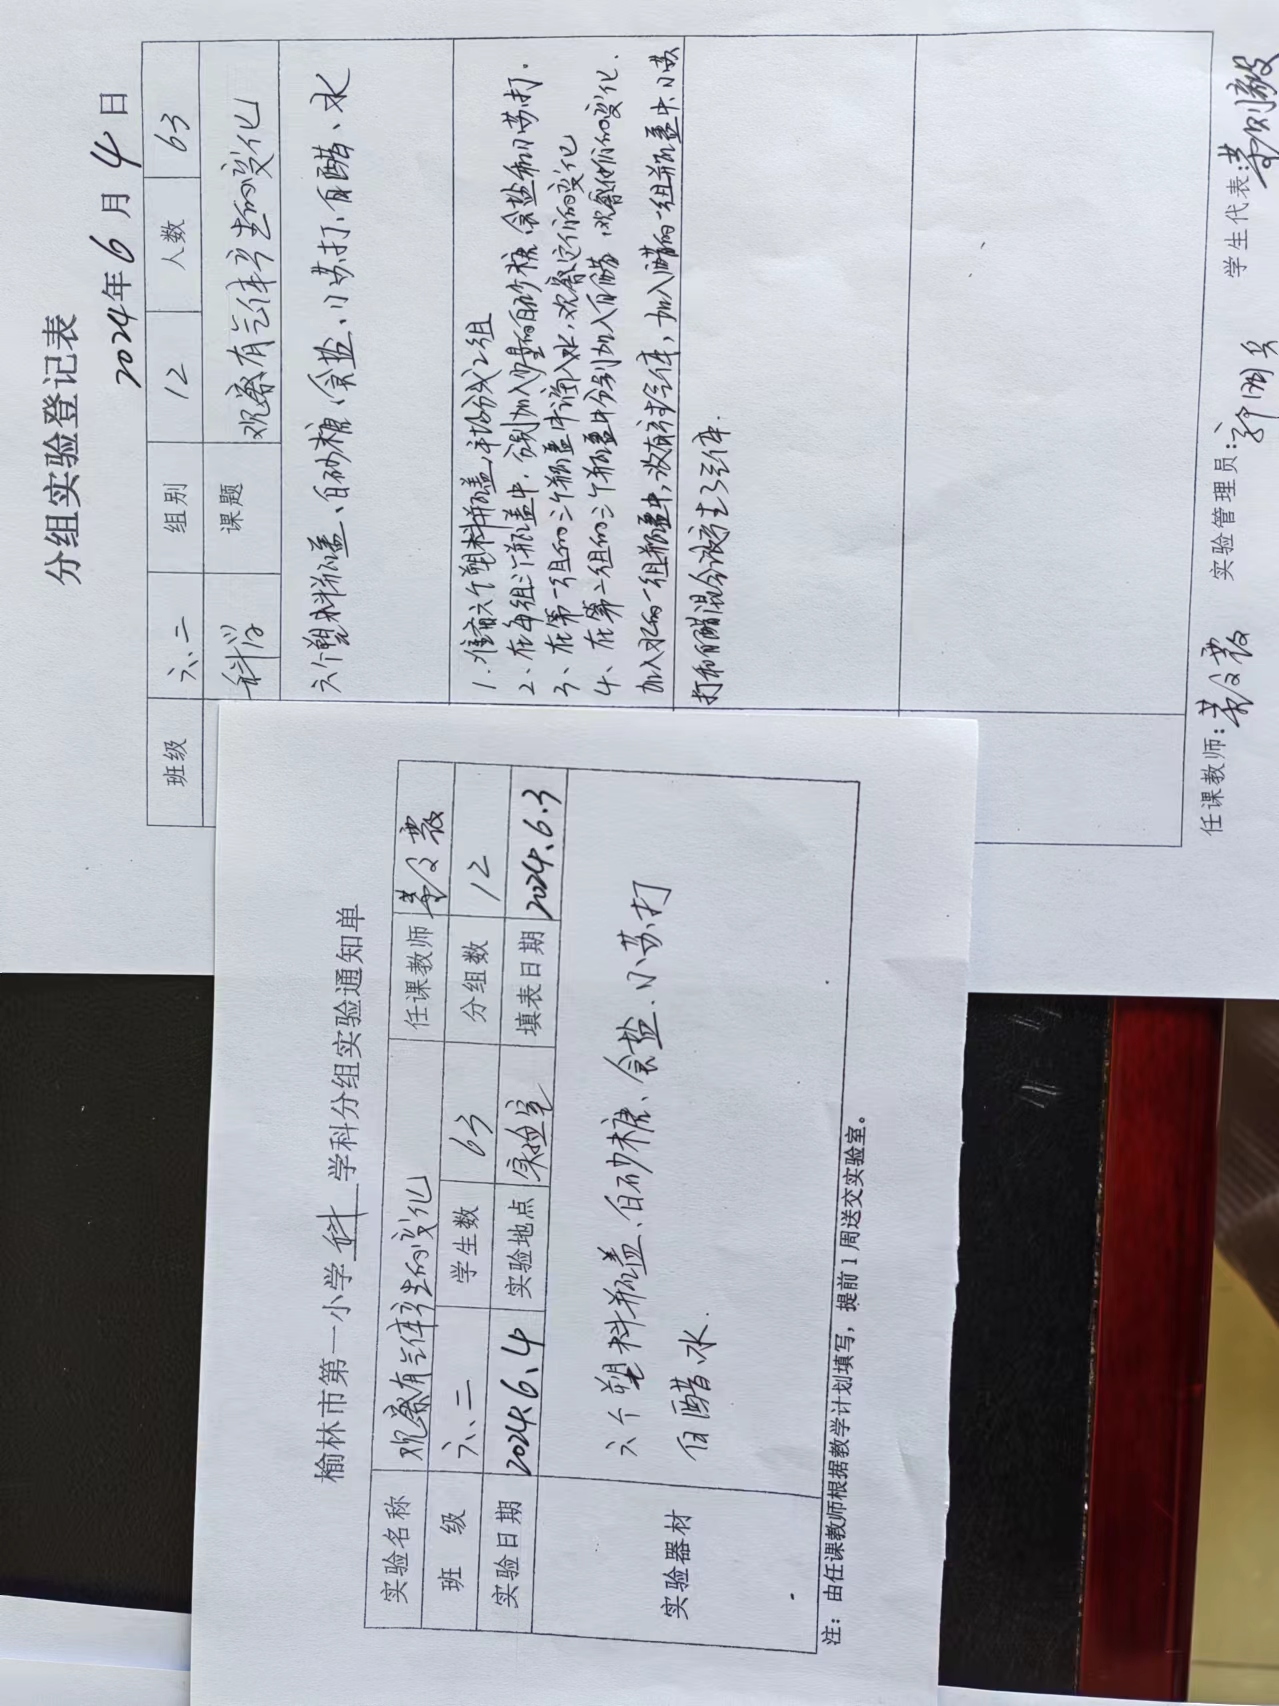 分组实验登记表
2024年6月4日
班级 六、二 组别 12 人数 63
科学 课题 观察有气体产生的变化
六个塑料瓶盖、白砂糖、食盐、小苏打、白醋、水
1、准备六个塑料瓶盖,平均分成2组
2、在每组三个瓶盖中,分别加入少量的白砂糖、食盐和小苏打.
3、在第一组的三个瓶盖中滴入水,观察它们的变化
4、在第二组的三个瓶盖中分别加入白醋,观察他们的变化.
加入水的一组瓶盖中,没有产生气体,加入醋的一组瓶盖中、小苏
打和白醋混合液产生了气体.
任课教师: 实验管理员: 学生代表:
榆林市第一小学 科 学科分组实验通知单
实验名称 观察有气体产生的变化 任课教师
班级 六、二 学生数 63 分组数 12
实验日期 2024.6.4 实验地点 实验室 填表日期 2024.6.3
实验器材
六个塑料瓶盖、白砂糖、食盐、小苏打
白醋、水.
注:由任课教师根据教学计划填写,提前1周送交实验室。